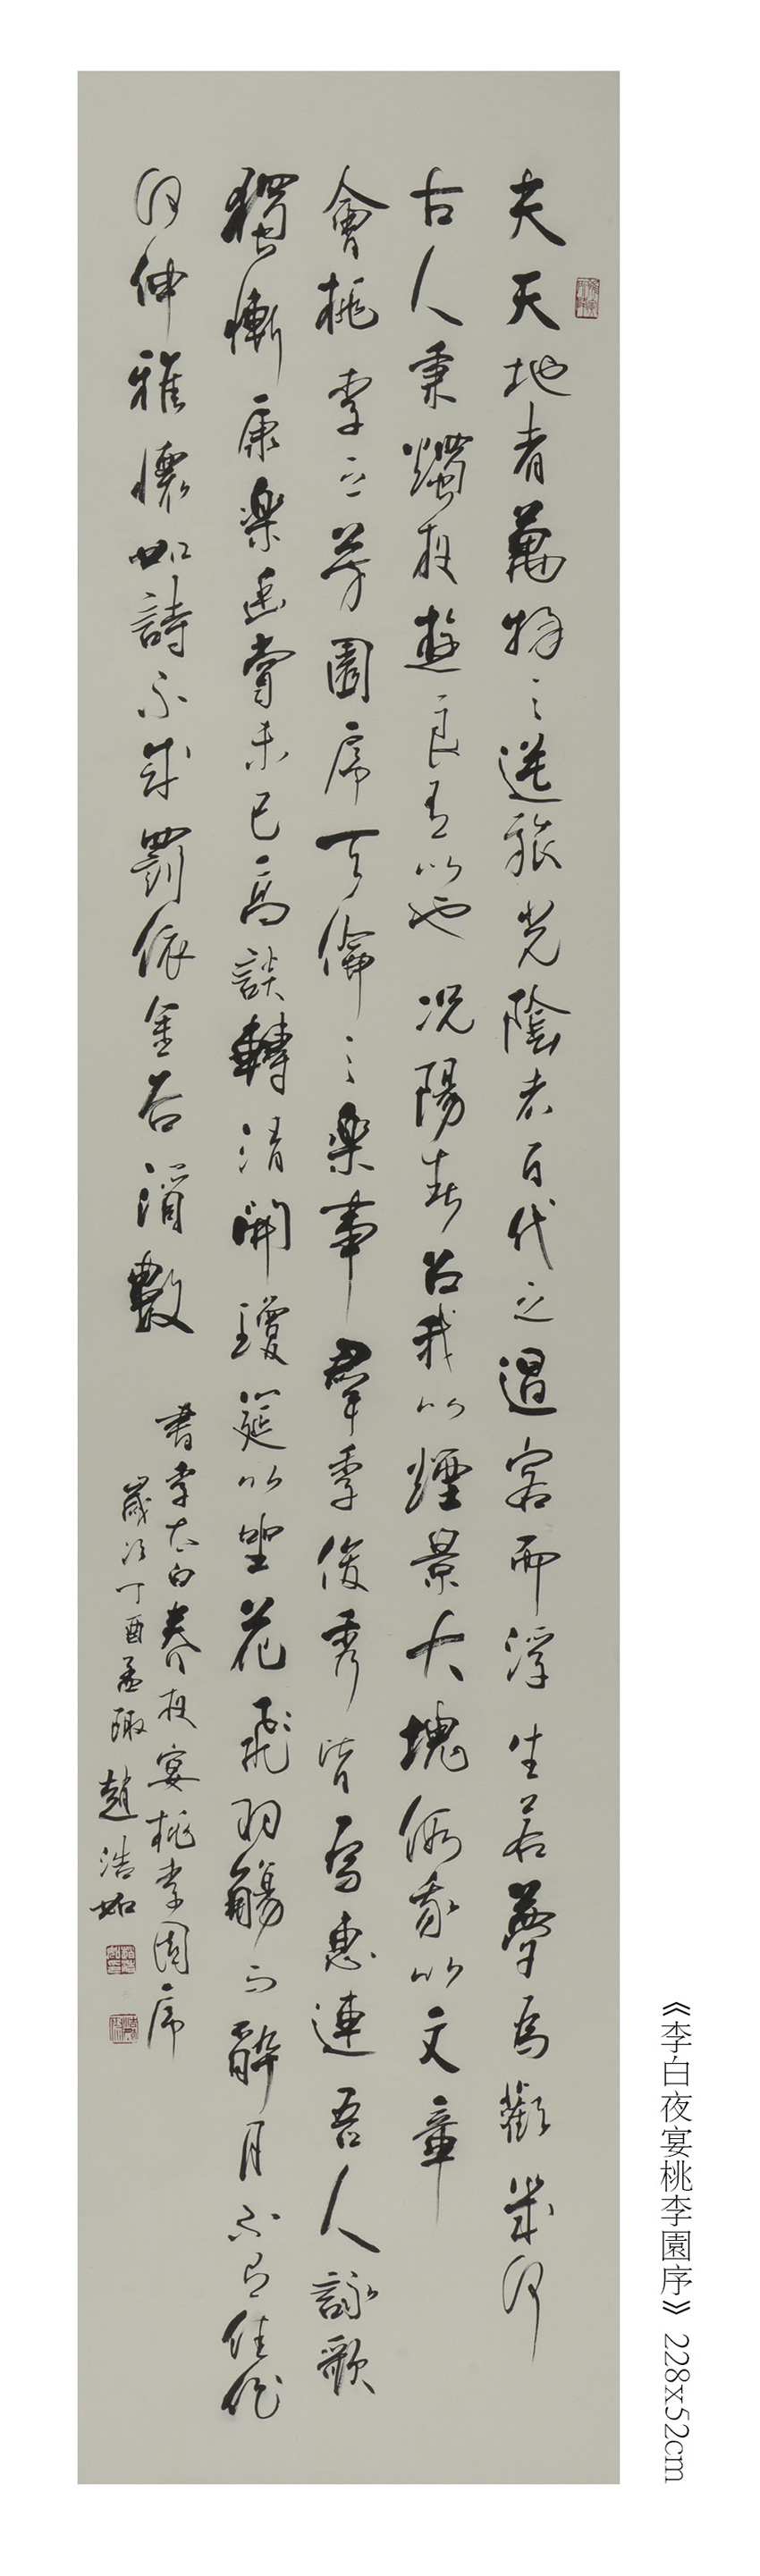 夫天地者萬物之逆旅光陰者百代之過客而浮生若夢爲歡幾何
古人秉燭夜遊良有以也况陽春召我以煙景大塊假我以文章
會桃李之芳園序天倫之楽事羣季俊秀皆爲惠連吾人詠歌
獨慚康楽幽賞未已高談轉清開瓊筵以坐花飛羽觴而醉月不有佳作
何伸雅懷如詩不成罰依金谷酒數
書李太白春夜宴桃李園序
歲次丁酉孟陬 趙浩如
《李白夜宴桃李園序》 228x52cm